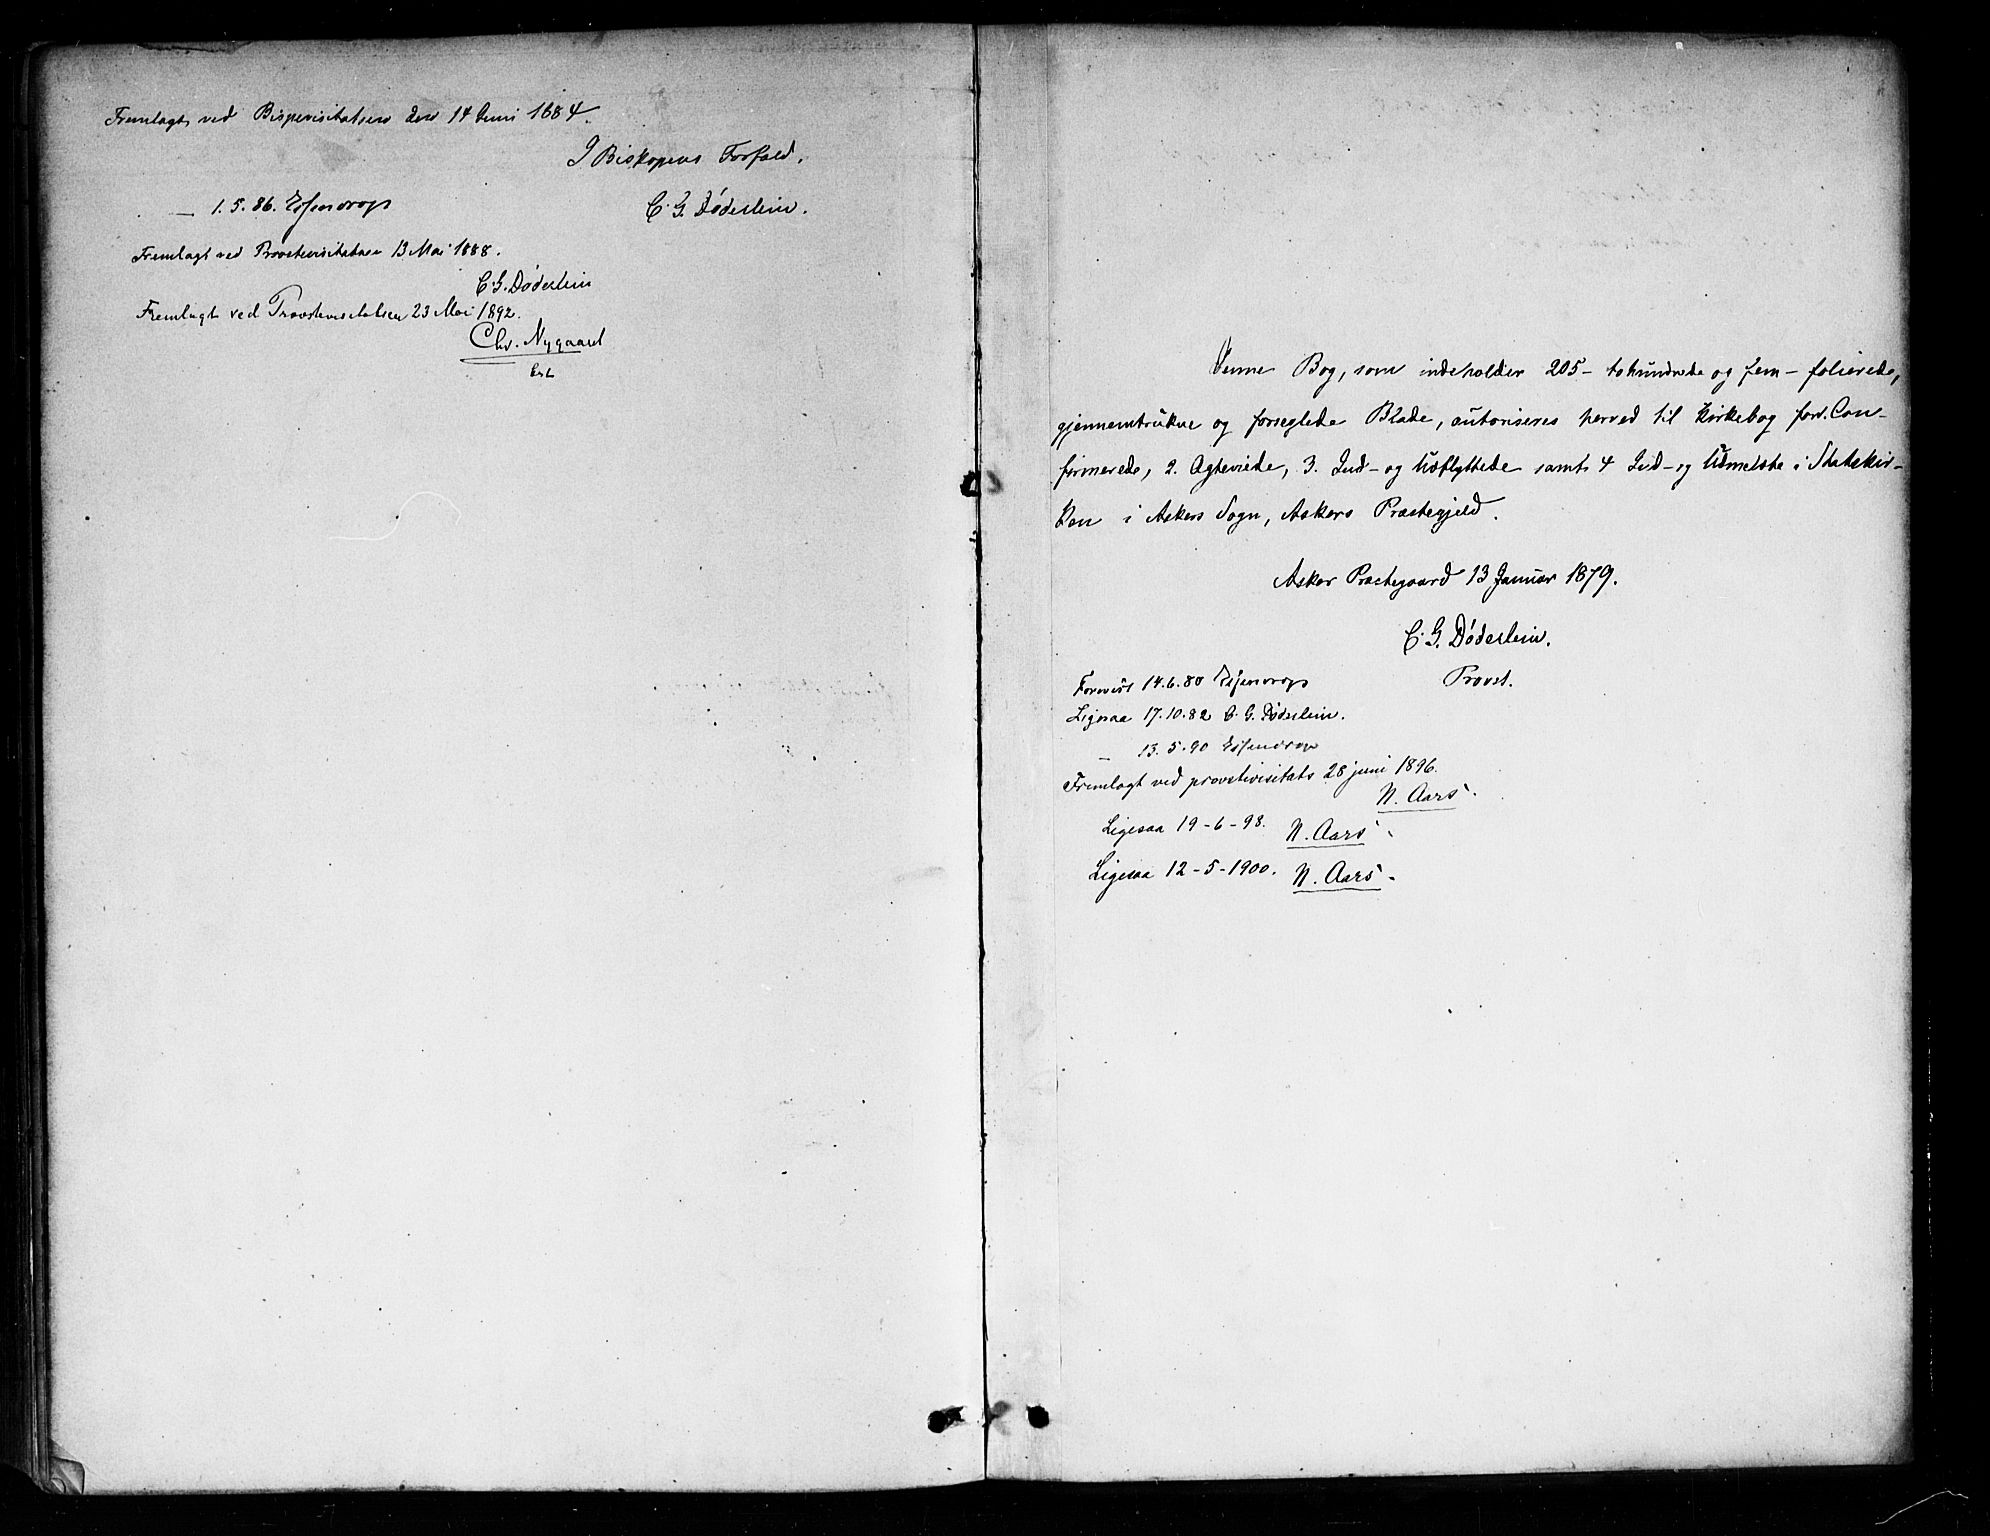 Fremlagt ved Bispevisitatsen den 14 Juni 1884.
I Biskopens Forfald.
C. G. Døderlein.
— 1.5.86. Essendrop
Fremlagt ved Provstevisitatsen 13 Mai 1888.
C. G. Døderlein
Fremlagt ved Provstevisitatsen 23 Mai 1892.
Chr. Nygaard
Denne Bog, som indeholder 205 – tohundrede og fem – folierede,
gjennemtrukne og forseglede Blade, autoriseres herved til Kirkebog for 1. Con-
firmerede, 2. Ægteviede, 3. Ind- og Udflyttede samt 4 Ind- og Udmeldte i Statskir-
ken i Askers Sogn, Askers Præstegjeld.
Asker Præstegaard 13 Januar 1879.
C. G. Døderlein.
Provst.
Forevist 14.6.80 Essendrop
Ligesaa 17.10.82 C. G. Døderlein.
— 13.5.90 Essendrop
Fremlagt ved provstivisitats 28 juni 1896.
N. Aars.
Ligesaa 19-6-98. N. Aars.
Ligesaa 12-5-1900. N. Aars.